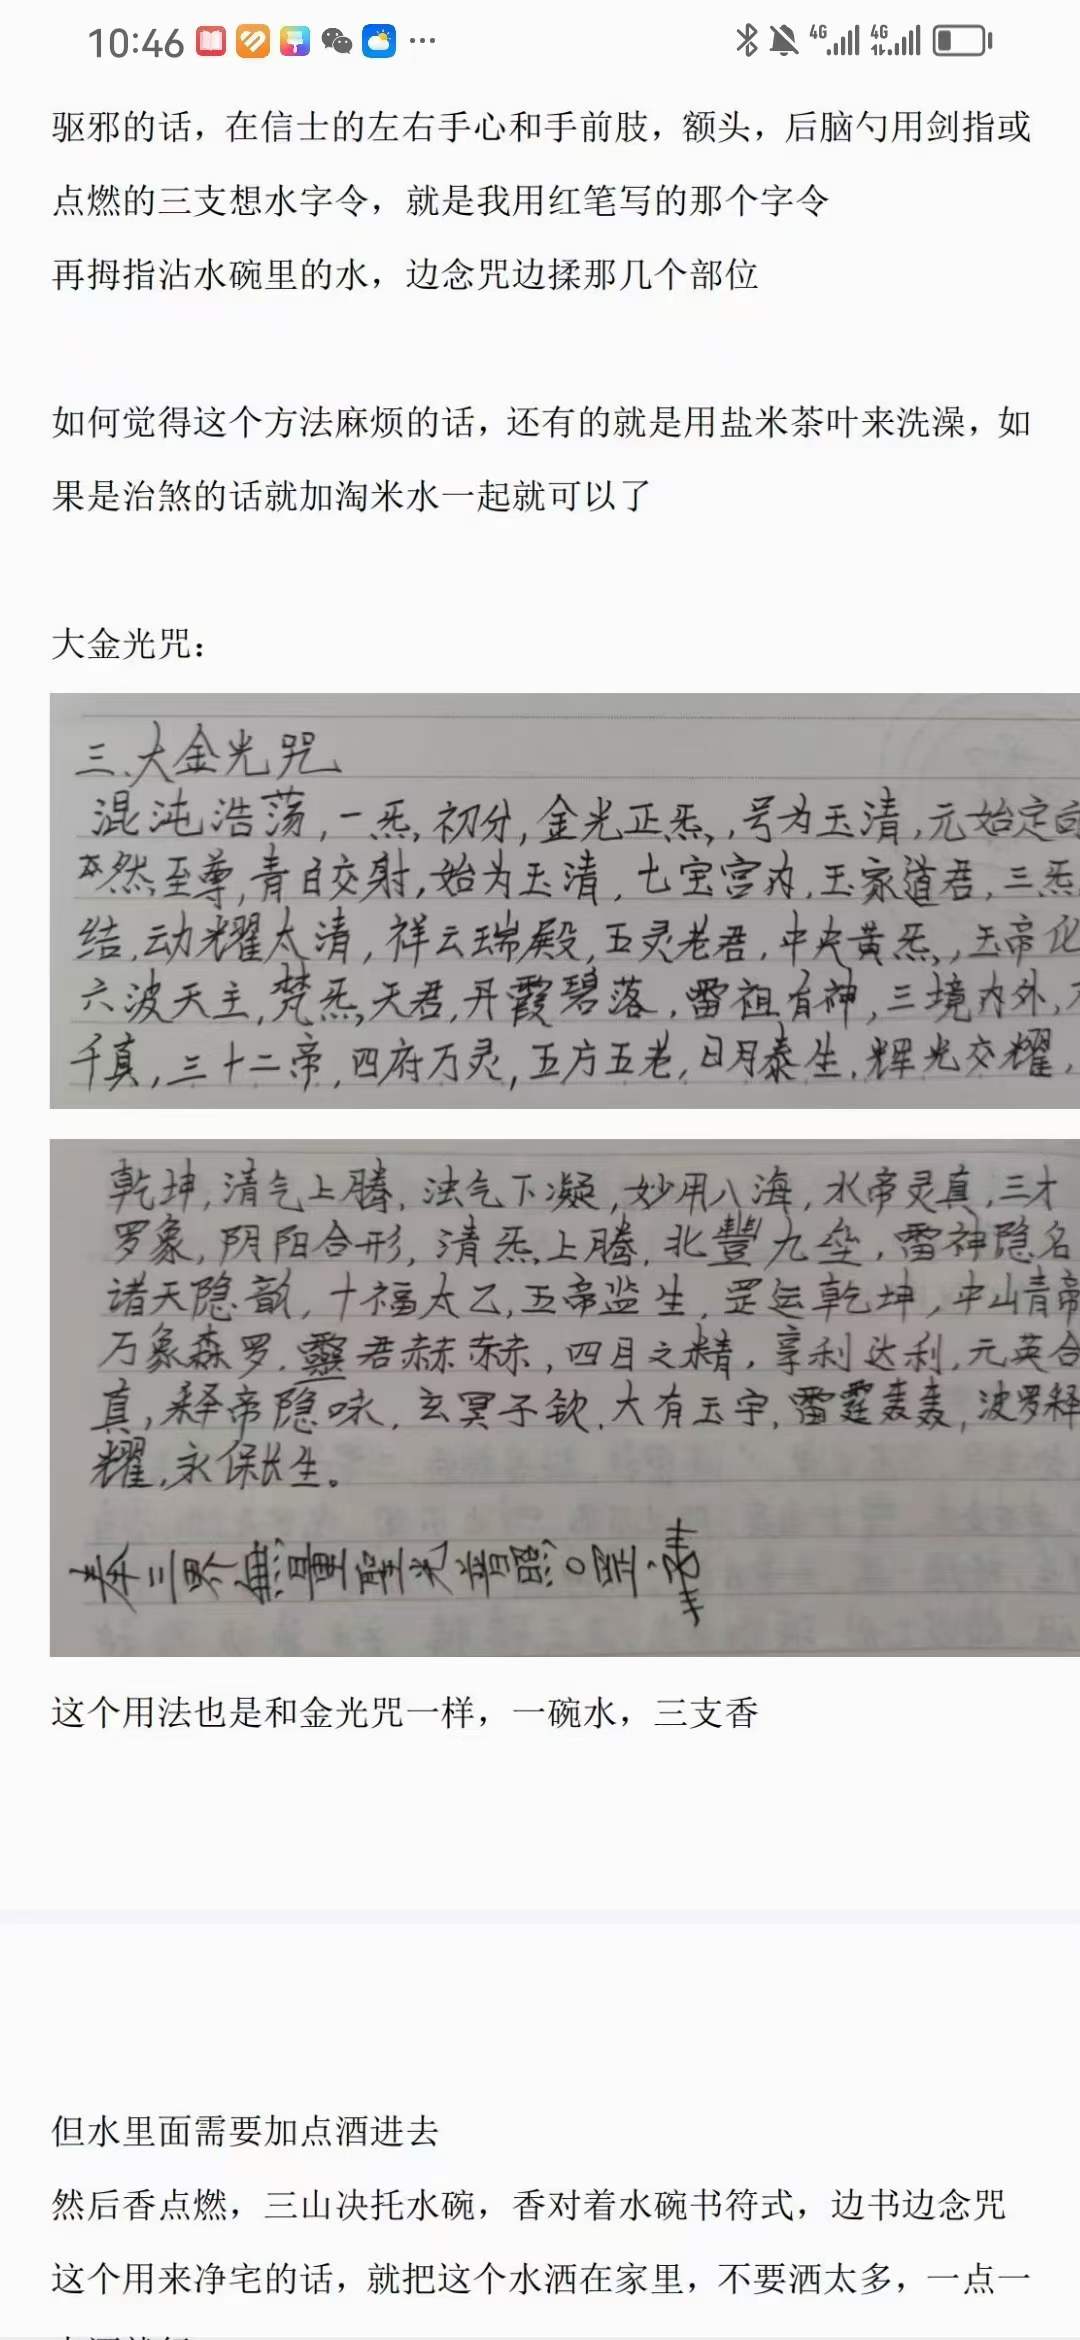 10:46
4G 4G
驱邪的话，在信士的左右手心和手前肢，额头，后脑勺用剑指或
点燃的三支想水字令，就是我用红笔写的那个字令
再拇指沾水碗里的水，边念咒边揉那几个部位
如何觉得这个方法麻烦的话，还有的就是用盐米茶叶来洗澡，如
果是治煞的话就加淘米水一起就可以了
大金光咒：
三、大金光咒
混沌浩荡，一炁初分，金光正炁，号为玉清，元始定
然至尊，青白交射，始为玉清，七宝宫内，玉家道君，三炁
结，动耀太清，祥云瑞殿，五灵老君，中央黄炁，玉帝化
六波天主，梵炁天君，丹霞碧落，雷祖有神，三境内外，
千真，三十二帝，四府万灵，五方五老，日月泰生，辉光交耀，
乾坤，清气上腾，浊气下凝，妙用八海，水帝灵真，三才
罗象，阴阳合形，清炁上腾，北豐九垒，雷神隐名
诸天隐韵，十福太乙，五帝监生，罡运乾坤，中山青帝
万象森罗，靈君赫赫，四目之精，享利达利，元英合
真，释帝隐咏，玄冥子钦，大有玉宇，雷霆轰轰，波罗释
耀，永保长生。
奉三界無量聖光普照〇罡
这个用法也是和金光咒一样，一碗水，三支香
但水里面需要加点酒进去
然后香点燃，三山决托水碗，香对着水碗书符式，边书边念咒
这个用来净宅的话，就把这个水洒在家里，不要洒太多，一点一